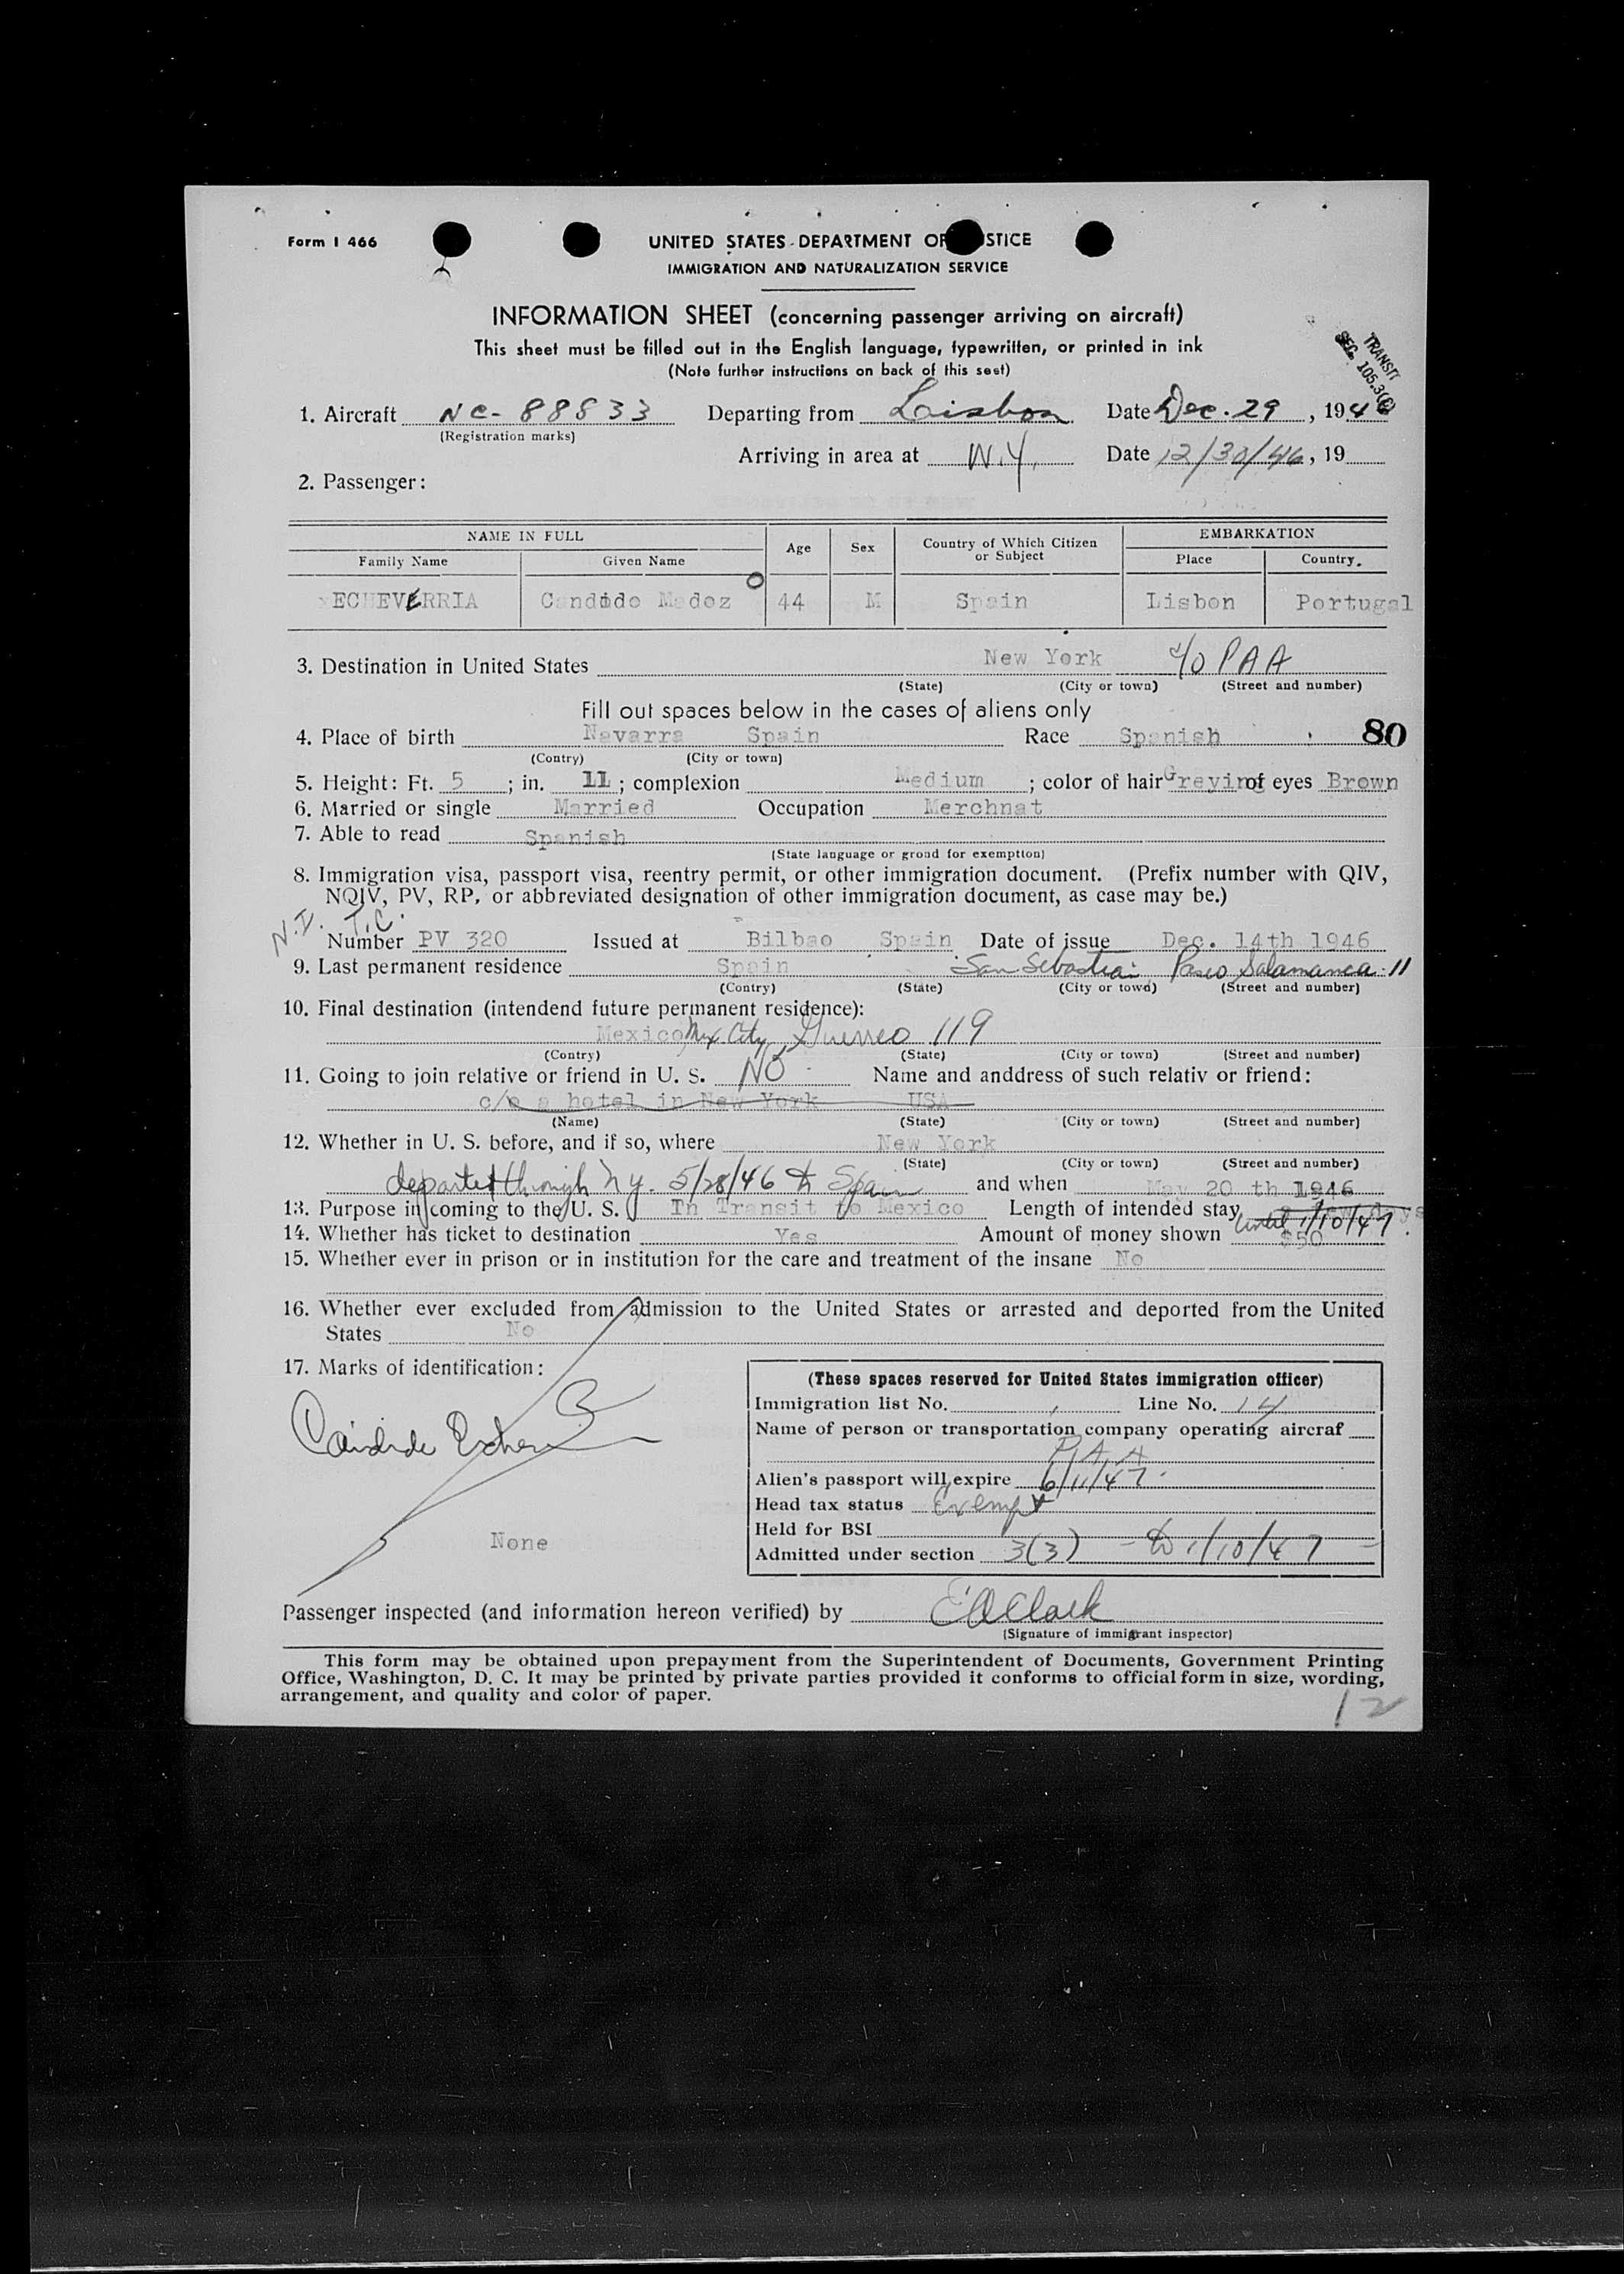 Form I 466
UNITED STATES DEPARTMENT OF STICE
IMMIGRATION AND NATURALIZATION SERVICE
INFORMATION SHEET (concerning passenger arriving on aircraft)
This sheet must be filled out in the English language, typewritten, or printed in ink
(Note further instructions on back of this seet)
TRANSIT
SEC. 105.3(C)
1. Aircraft NC-88833 Departing from Lisbon Date Dec. 29, 1946
(Registration marks)
Arriving in area at N.Y. Date 12/30/46, 19
2. Passenger:
NAME IN FULL Age Sex Country of Which Citizen or Subject EMBARKATION
Family Name Given Name Place Country.
xECHEVERRIA Candido Madoz O 44 M Spain Lisbon Portugal
3. Destination in United States New York c/o PAA
(State) (City or town) (Street and number)
Fill out spaces below in the cases of aliens only
4. Place of birth Navarra Spain Race Spanish 80
(Contry) (City or town)
5. Height: Ft. 5 ; in. 11 ; complexion Medium ; color of hair Greying of eyes Brown
6. Married or single Married Occupation Merchnat
7. Able to read Spanish
(State language or groad for exemption)
8. Immigration visa, passport visa, reentry permit, or other immigration document. (Prefix number with QIV,
NQIV, PV, RP, or abbreviated designation of other immigration document, as case may be.)
N.I. T.C.
Number PV 320 Issued at Bilbao Spain Date of issue Dec. 14th 1946
9. Last permanent residence Spain San Sebastian Paseo Salamanca 11
(Contry) (State) (City or town) (Street and number)
10. Final destination (intendend future permanent residence):
Mexico Mex. City, Guerreo 119
(Contry) (State) (City or town) (Street and number)
11. Going to join relative or friend in U. S. NO Name and anddress of such relativ or friend:
c/o a hotel in New York USA
(Name) (State) (City or town) (Street and number)
12. Whether in U. S. before, and if so, where New York
(State) (City or town) (Street and number)
departed through N.Y. 5/28/46 to Spain and when May 20 th 1946
13. Purpose in coming to the U. S. In Transit to Mexico Length of intended stay until 1/10/47.
14. Whether has ticket to destination Yes Amount of money shown $50
15. Whether ever in prison or in institution for the care and treatment of the insane No
16. Whether ever excluded from admission to the United States or arrested and deported from the United
States No
17. Marks of identification:
Candido Echeverria
None
(These spaces reserved for United States immigration officer)
Immigration list No. Line No. 14
Name of person or transportation company operating aircraf
P.A.A
Alien's passport will expire 6/11/47.
Head tax status Exempt
Held for BSI
Admitted under section 3(3) - to 1/10/47 -
Passenger inspected (and information hereon verified) by EAClark
(Signature of immigrant inspector)
This form may be obtained upon prepayment from the Superintendent of Documents, Government Printing
Office, Washington, D. C. It may be printed by private parties provided it conforms to official form in size, wording,
arrangement, and quality and color of paper.
12